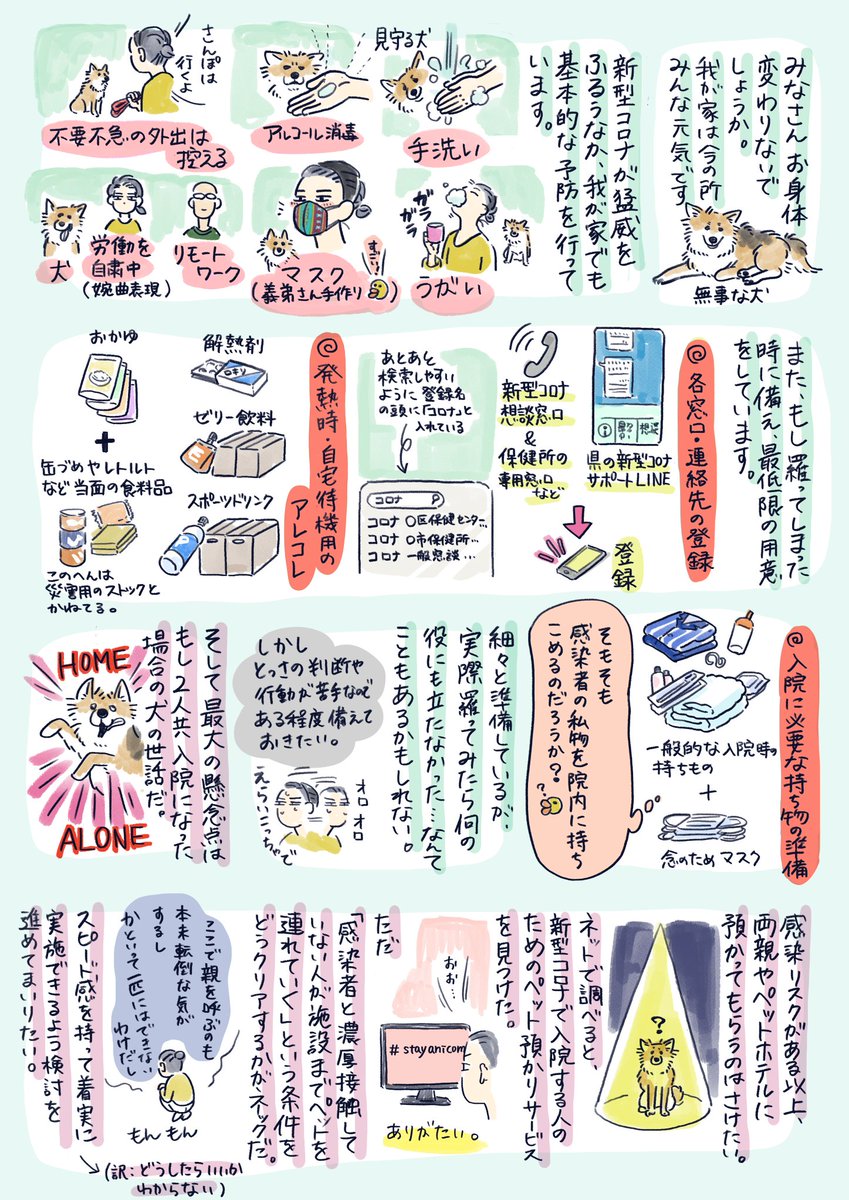 みなさんお身体
変わりないで
しょうか。
我が家は今の所
みんな元気です
無事な犬
新型コロナが猛威を
ふるうなか、我が家でも
基本的な予防を行って
います。
手洗い
見守る犬
アルコール消毒
さんぽは
行くよ
不要不急の外出は
控える
うがい
ガラ
ガラ
マスク
(義弟さん手作り)
すごっ!
リモート
ワーク
労働を
自粛中
(婉曲表現)
犬
また、もし罹ってしまった
時に備え、最低限の用意
をしています。
@各窓口・連絡先の登録
県の新型コロナ
サポートLINE
新型コロナ
相談窓口
&
保健所の
専用窓口
など
登録
あとあと
検索しやすい
ように登録名
の頭に「コロナ」と
入れている
コロナ
コロナ 〇区保健センタ…
コロナ 〇市保健所…
コロナ 一般相談…
@発熱時・自宅待機用の
アレコレ
解熱剤
ゼリー飲料
スポーツドリンク
おかゆ
+
缶づめやレトルト
など当面の食料品
このへんは
災害用のストックと
かねてる。
@入院に必要な持ち物の準備
一般的な入院時の
持ちもの
+
念のためマスク
そもそも
感染者の私物を院内に持ち
こめるのだろうか?
?
細々と準備しているが、
実際罹ってみたら何の
役にも立たなかった…なんて
こともあるかもしれない。
しかし
とっさの判断や
行動が苦手なので
ある程度備えて
おきたい。
オロオロ
えらいこっちゃで
そして最大の懸念点は
もし2人共入院になった
場合の犬の世話だ。
HOME
ALONE
感染リスクがある以上、
両親やペットホテルに
預かってもらうのはさけたい。
?
ネットで調べると、
新型コロナで入院する人の
ためのペット預かりサービス
を見つけた。
おお…
#stayanicom
ありがたい。
ただ
「感染者と濃厚接触して
いない人が施設までペットを
連れていく」という条件を
どうクリアするかがネックだ。
ここで親を呼ぶのも
本末転倒な気が
するし
かといって一匹にはできない
わけだし
もんもん
スピード感を持って着実に
実施できるよう検討を
進めてまいりたい。
(訳:どうしたらいいか
わからない)